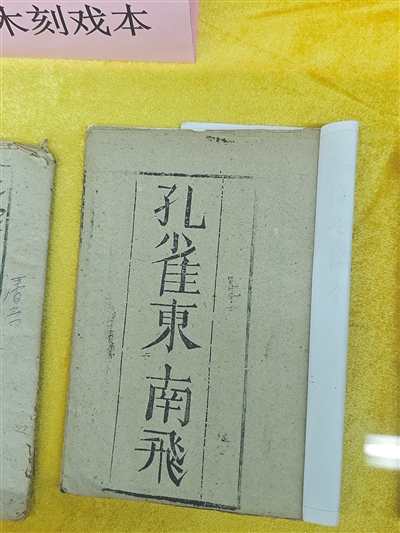 木刻戏本
孔雀東南飛